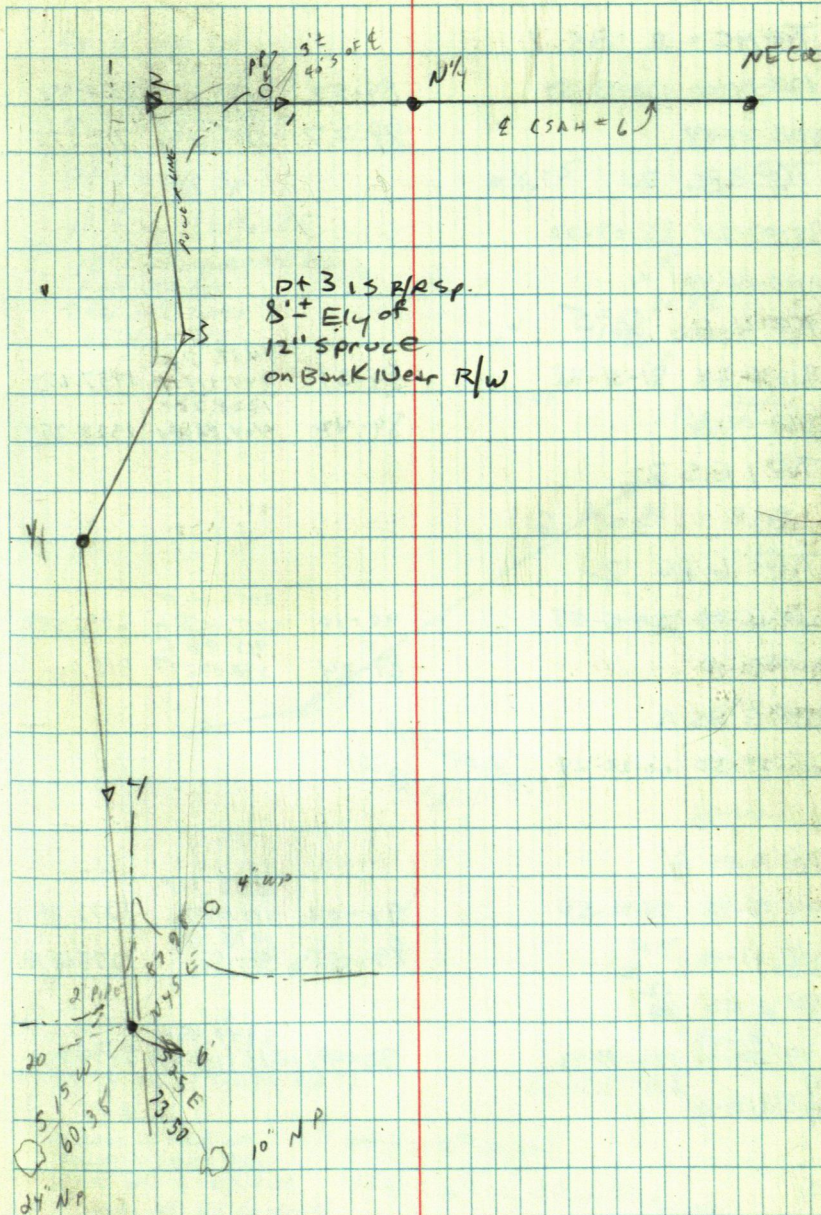 PP
3'±
40' S of ℄
N 1/4
NE Cor
1
℄ CSAH #6
POWER LINE
3
Pt 3 is R/R Sp.
8'± Ely of
12" Spruce
on Bank Near R/W
1/4
4
4" WP
87.98
N45E
2" Pipe
20
6'
S25E
73.50
S15W
60.38
10" NP
24" NP